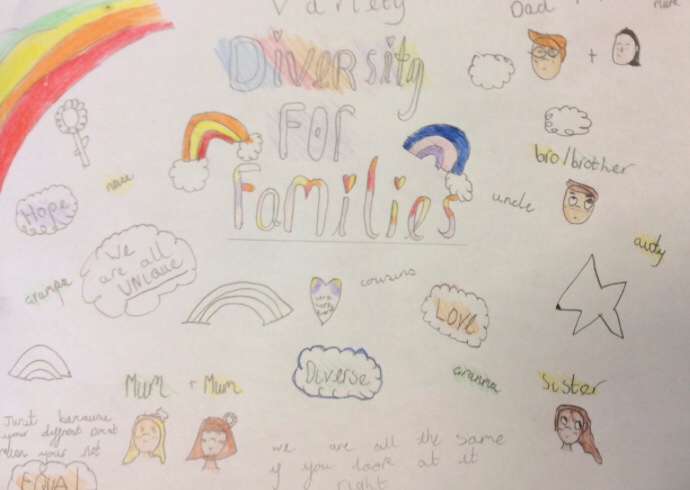 Variety
Dad +
Mum
Diversity
For
Families
bro/brother
uncle
auty
Hope
We
are all
UNIQUE
grampa
cousins
Love
Diverse
granma
Mum + Mum
Sister
Just because
your different
your not
EQUAL
we are all the same
if you look at it
right